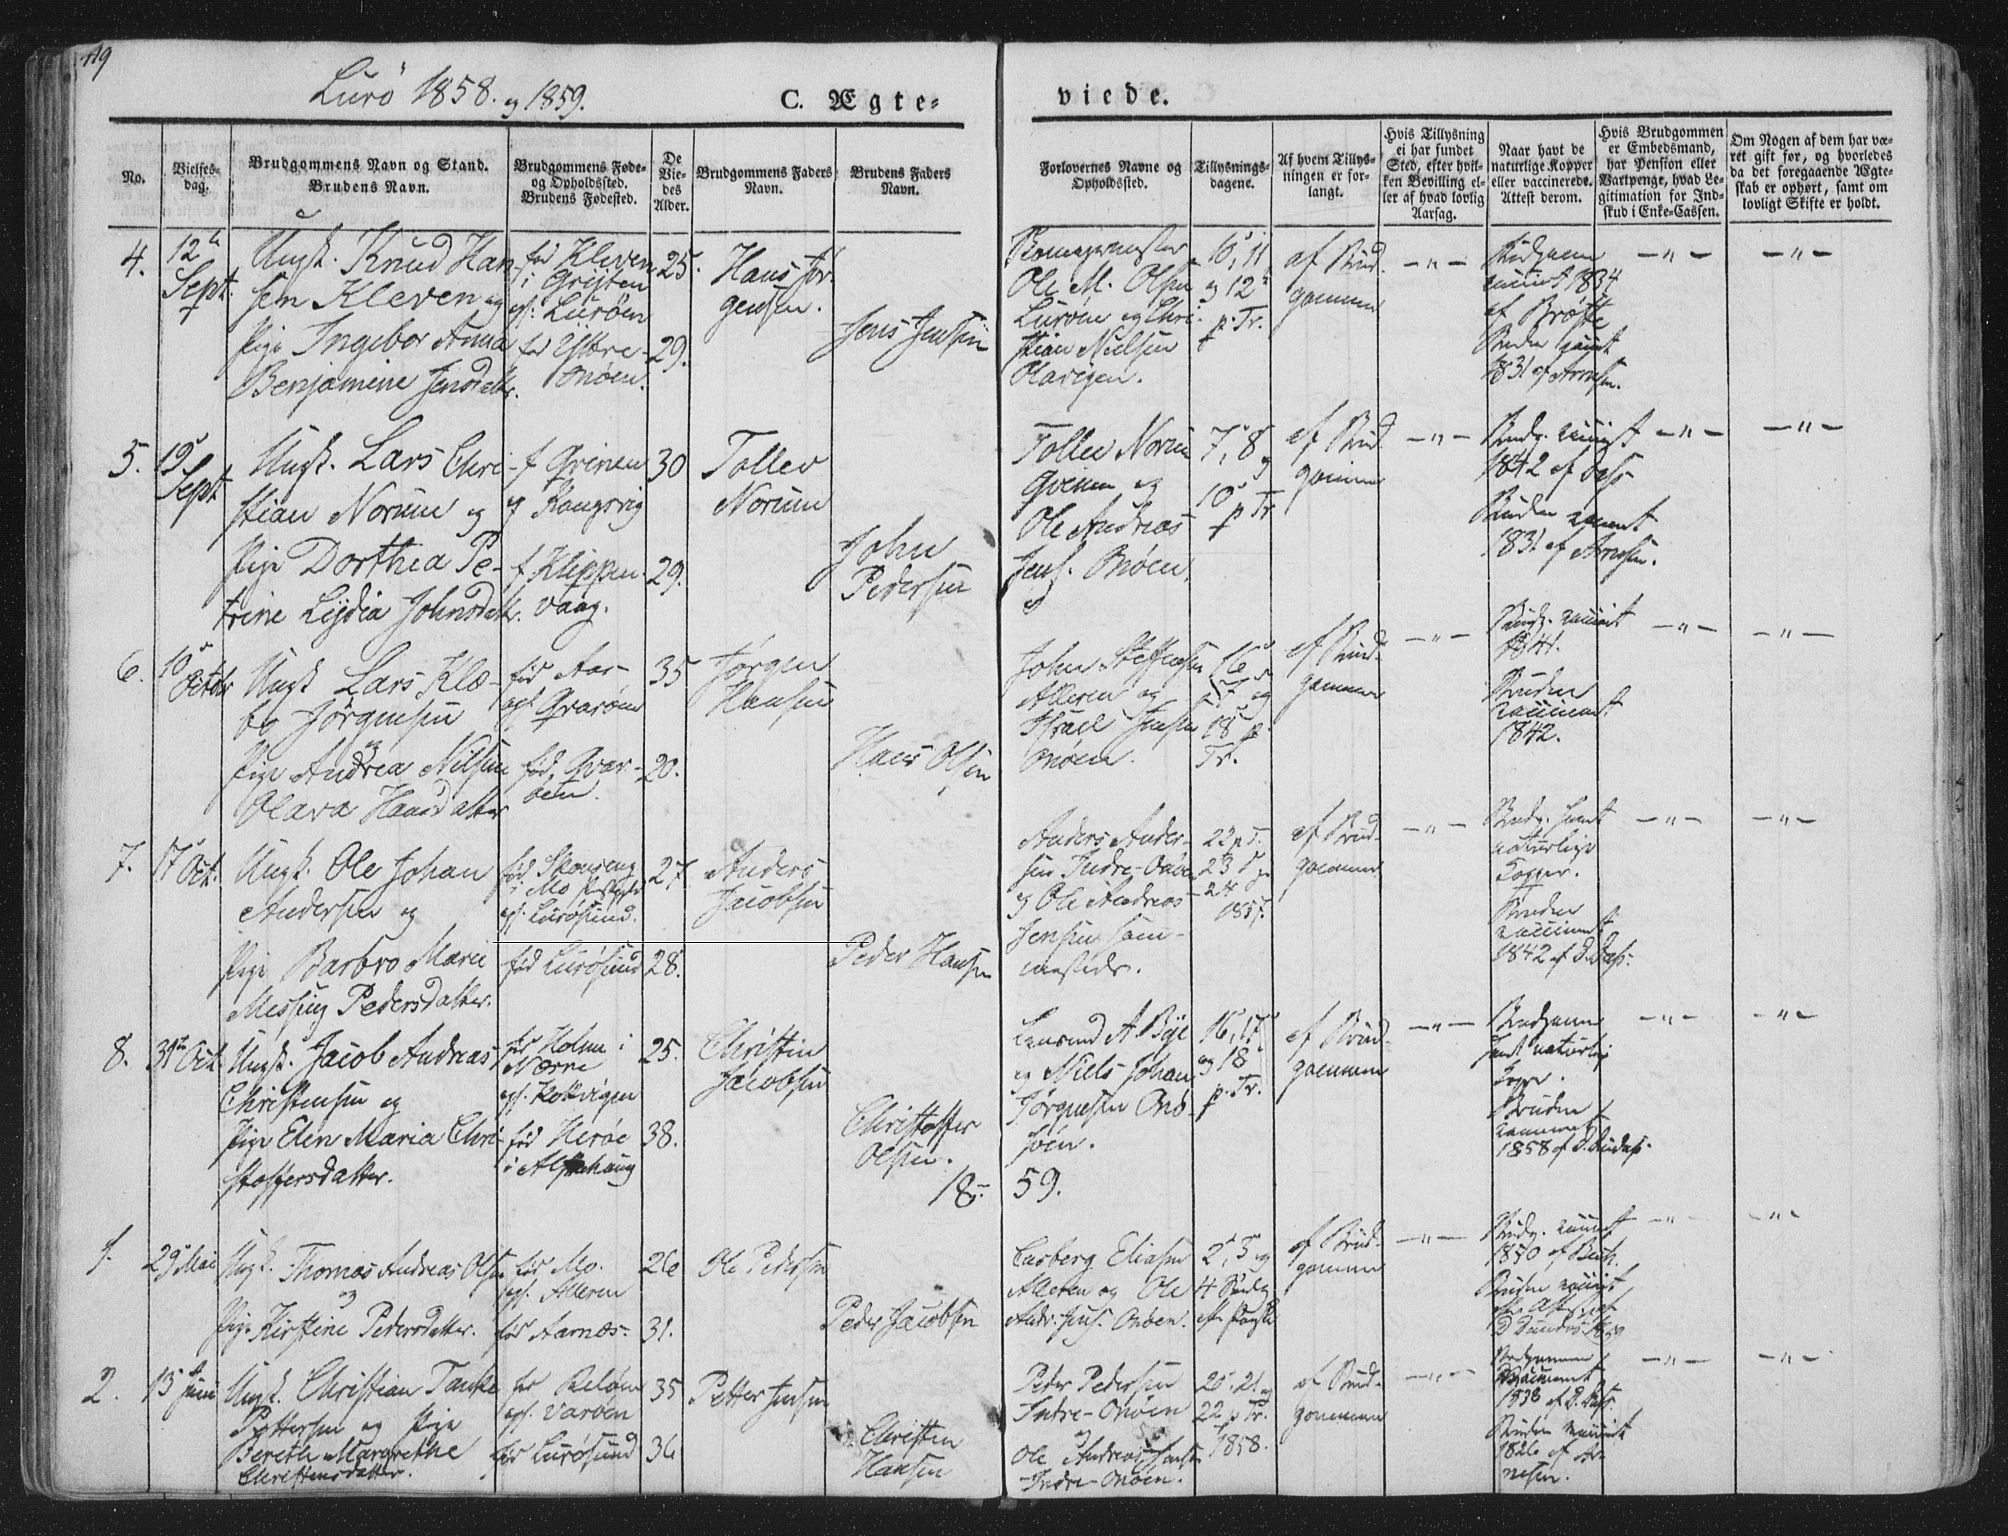 119
Lurö 1858. og 1859.
C. Ægte-
viede.
No.
Vielses-
dag.
Brudgommens Navn og Stand.
Brudens Navn.
Brudgommens Føde-
og Opholdssted.
Brudens Fødested.
De
Vie-
des
Alder.
Brudgommens Faders
Navn.
Brudens Faders
Navn.
Forlovernes Navne og
Opholdssted.
Tillysnings-
dagene.
Af hvem Tillys-
ningen er for-
langt.
Hvis Tillysning
ei har fundet
Sted, efter hvil-
ken Bevilling el-
ler af hvad lovlig
Aarsag.
Naar havt de
naturlige Kopper
eller vaccinerede.
Attest derom.
Hvis Brudgommen
er Embedsmand,
har Pension eller
Vartpenge, hvad Le-
gitimation for Ind-
skud i Enke-Cassen.
Om Nogen af dem har væ-
ret gift før, og hvorledes
da det foregaaende Ægte-
skab er ophørt, samt om
lovligt Skifte er holdt.
4.
12te
Sept.
Ungk. Knud Han-
sen Kleven og
Pige Ingebor Anna
Benjamine Jensdatter.
fød Kleven
i
opf. Luröen
fød Yttre-
Onöen.
25.
29.
Hans Jör-
gensen.
Jens Jensen
Ole M. Olsen
Luröen og Chri-
stian Nielsen
Olavigen.
10, 11
og 12te
p. Tr.
af Brud-
gommen
— „ —
Brudgommen
vaccint 1834
af
Bruden vaccint
1831 af Arnesen.
— „ —
— „ —
5.
19
Sept
Ungk. Lars Chri-
stian Norum og
Pige Dorthea Pe-
trine Lydia Johnsdatter.
f Qvinen
og Kongsvig
f. Klippen-
vaag.
30
29.
Tollev
Norum
John
Pedersen
Tollev Norum
Qvinen og
Ole Andreas
Jens. Onöen.
7, 8 og
10 p Tr
af Brud-
gommen
— „ —
Brudg. vaccint
1842 af Dass
Bruden vaccint
1831 af Arnesen.
— „ —
— „ —
6.
10
Octobr
Ungk Lars Klæ-
bo Jörgensen
og
Pige Andrea Nilsine
Olava Hansdatter
fød Aas-
opf. Qvaröen
fød. Qvar-
öen.
35
20.
Jörgen
Hansen
Hans Olsen
John Steffensen
Alleren og
Israel Jensen
Onöen.
16
17 og
18 p.
Tr.
af Brud-
gommen
— „ —
Brudg. vaccint
1841.
Bruden
vaccineret
1842.
— „ —
— „ —
7.
17 Oct.
Ungk. Ole Johan
Andersen og
Pige Barbro Marie
Messing Pedersdatter.
fød Skonseng
i Mo
opf. Lurösund.
fød Lurösund
27
28.
Anders
Jacobsen
Peder Hansen
Anders Ander-
sen Indre-Onöen
og Ole Andreas
Jensen sam-
mesteds.
22 p T.
23
24
1857.
af Brud-
gommen
— „ —
Brudg. havt
naturlige
Kopper.
Bruden
vaccineret
1842 af D. Dass.
— „ —
— „ —
8.
31te Oct.
Ungk. Jacob Andreas
Christensen og
Pige Elen Maria Chri-
stoffersdatter.
fød Holm i
Næsne
opf. Kokvigen
fød Heröe
i Alstahaug
25.
38.
Christen
Jacobsen
Christoffer
Olsen.
A Bye
og Niels Johan
Jörgensen Onö-
söen.
16, 17
og 18
p. Tr.
af Brud-
gommen
— „ —
Brudgommen
havt naturlig
Kopper.
Bruden
vaccineret
1858 af
— „ —
— „ —
18 59.
1.
29 Mai
Ungk. Thomas Andreas Olsen
og
Pige Kirstine Pedersdatter.
fød Mo.
opf. Alleren
fød Aarnæs-
26
31.
Ole Pedersen
Peder Jacobsen
Casberg Eliasen
Alleren og Ole
Andr. Jens. Onöen.
2, 3 og
4 Söndg
eft. Paaske
af Brud-
gommen
— „ —
Brudg. vaccint
1850 af
Bruden vaccint
— „ —
— „ —
2.
13de
Juni
Ungk. Christian Tanke
Pettersen og Pige
Berethe Margrethe
Christensdatter.
fød Belöen
opf. Varöen
fød Lurösund
35
36
Petter Jensen
Christen
Hansen
Peder Pedersen
Indre-Onöen
og
Ole Andreas Jensen
Indre-Onöen.
20, 21 og
22 p Tr.
1858.
af Brud-
gommen
— „ —
Brudgommen
vaccineret
1838 af D. Dass.
Bruden vaccint
1826 af Ar-
nesen.
— „ —
— „ —